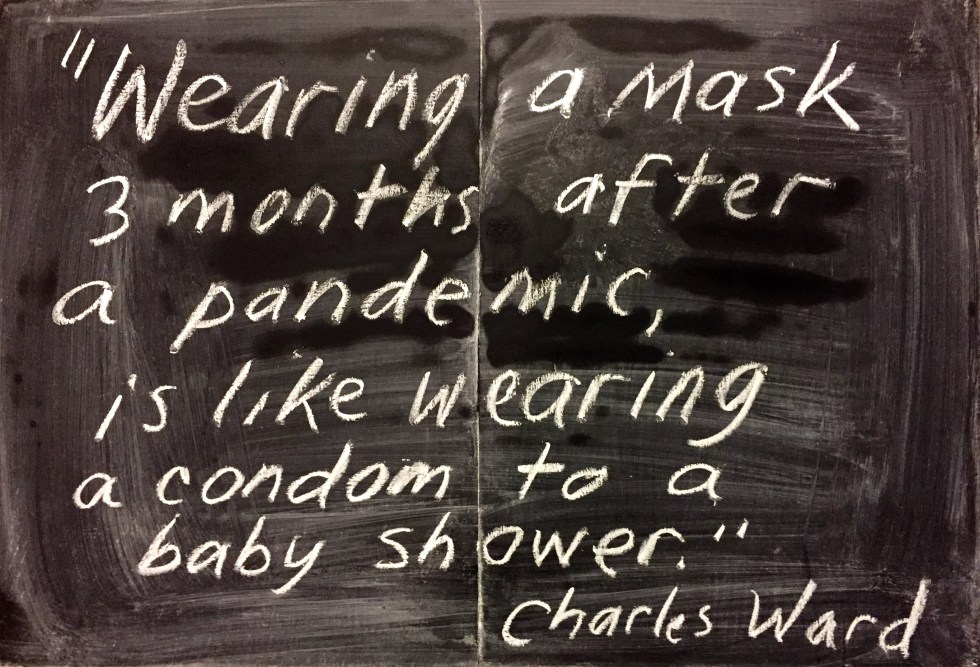 "Wearing a Mask
3 months after
a pandemic,
is like wearing
a condom to a
baby shower."
Charles Ward